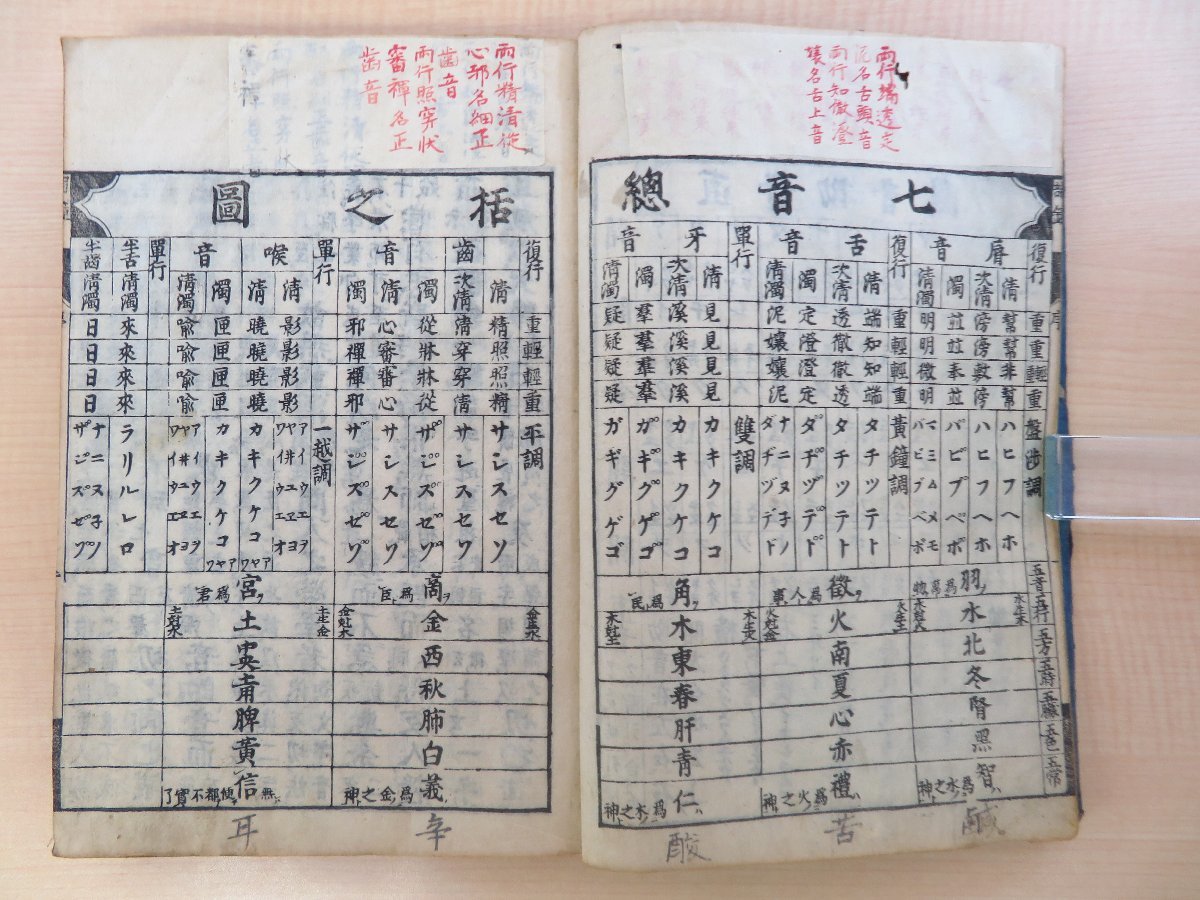 兩行端透定
泥名舌頭音
兩行知徹澄
孃名舌上音
七音總
復行 重重輕重 盤涉調
脣音
清 幫幫非幫 ハヒフヘホ
次清 滂滂敷滂 ハヒフヘホ
濁 並並奉並 バビブベボ
清濁 明明微明 マミムメモ バビブベボ
復行 重輕輕重 黃鐘調
舌音
清 端知知端 タチツテト
次清 透徹徹透 タチツテト
濁 定澄澄定 ダヂヅデド
清濁 泥孃孃泥 ナニヌ子ノ ダヂヅデド
單行 雙調
牙音
清 見見見見 カキクケコ
次清 溪溪溪溪 カキクケコ
濁 羣羣羣羣 ガギグゲゴ
清濁 疑疑疑疑 ガギグゲゴ
五音 五行 五方 五時 五臟 五色 五常
羽 爲萬物
水 水生木 水尅火
北
冬
腎
黑
智 爲水之神
徵 爲人事
火 火生土 火尅金
南
夏
心
赤
禮 爲火之神
角 爲民
木 木生火 木尅土
東
春
肝
青
仁 爲木之神
鹹
苦
酸
兩行精清從
心邪名細正
齒音
兩行照穿狀
審禪名正
齒音
括之圖
復行 重輕輕重 平調
齒音
清 精照照精 サシスセソ
次清 清穿穿清 サシスセソ
濁 從牀牀從 ザジズゼゾ
清 心審審心 サシスセソ
濁 邪禪禪邪 ザジズゼゾ
單行 一越調
喉音
清 影影影影 アイウエヲ
清 曉曉曉曉 カキクケコ
濁 匣匣匣匣 カキクケコ
清濁 喻喻喻喻 アイウエヲ
單行
半舌清濁 來來來來 ラリルレロ
半齒清濁 日日日日 ナニヌ子ノ ザジズゼゾ
商 爲臣
金 金生水 金尅木
西
秋
肺
白
義 爲金之神
宮 爲君
土 土生金 土尅水
中央
土用
脾
黃
信 無便都不實了
辛
耳